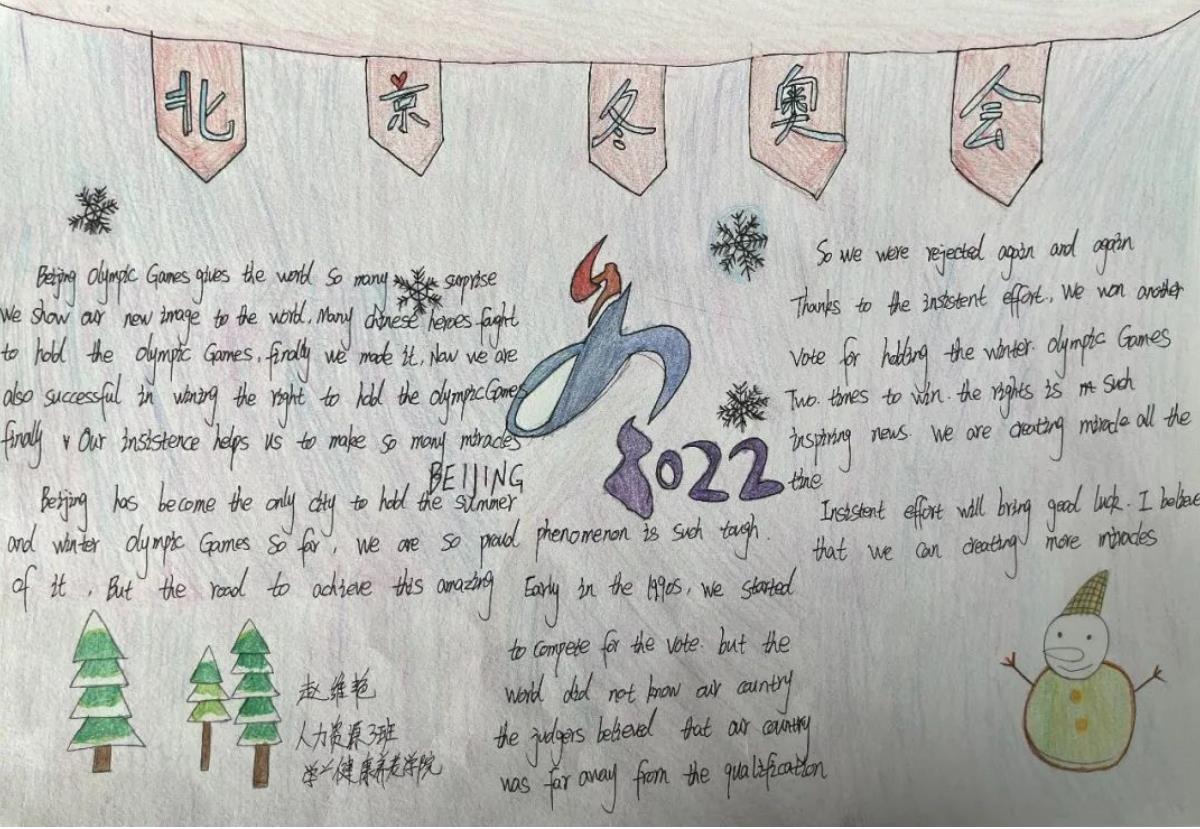 北京冬奥会
Beijing Olympic Games gives the world so many surprise
We show our new image to the world. Many chinese heroes faght
to hold the Olympic Games, finally we made it. Now we are
also successful in wining the right to hold the Olympic Games
finally Our insistence helps us to make so many miracles
BEIJING
2022
Beijing has become the only city to hold the summer
and winter Olympic Games so far, we are so proud
of it, But the road to achieve this amazing
phenomenon is such tough.
Early in the 1990s, we started
to compete for the vote. but the
world did not know our country
the judgers believed that our country
was far away from the qualification
So we were rejected again and again
Thanks to the insistent effort, we won another
vote for holding the winter. Olympic Games
Two. times to win. the rights is such
inspiring news. We are creating miracle all the
time
Insistent effort will bring good luck. I believe
that we can creating more miracles
赵维艳
人力资源3班
健康养老学院